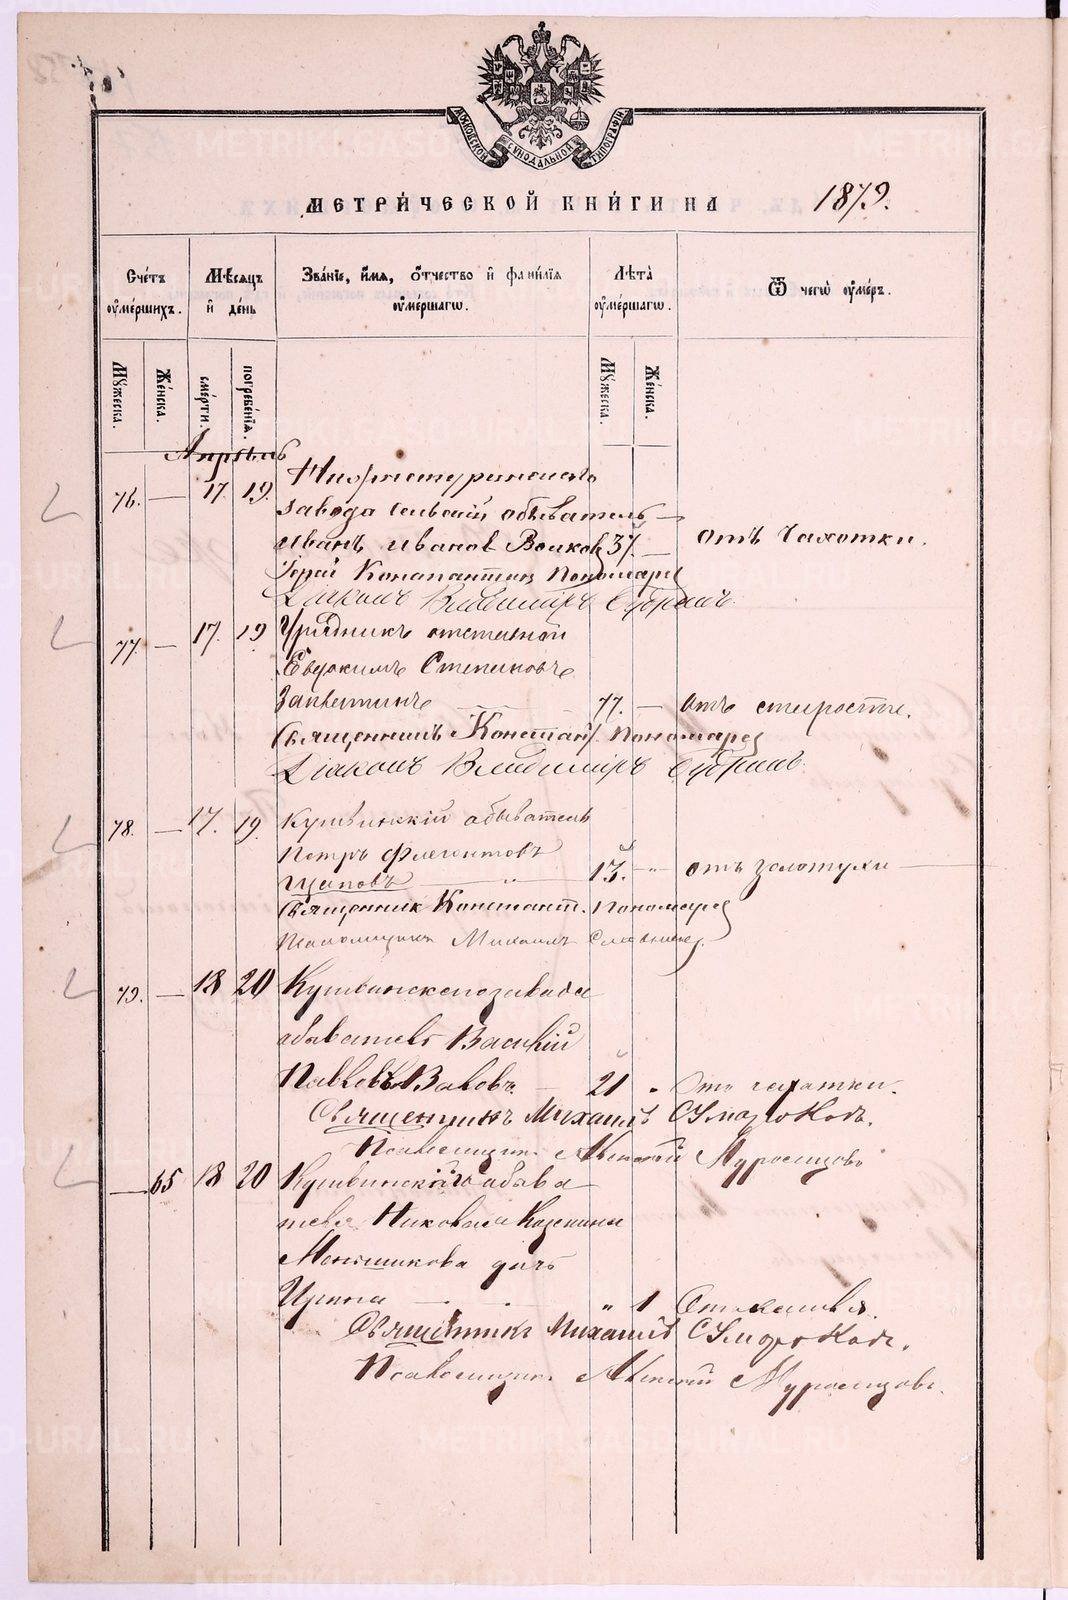 МОСКОВСКОЙ СѴНОДАЛЬНОЙ ТИПОГРАФІИ
МЕТРИ́ЧЕСКОЙ КНИ́ГИ НА 1879.
Сче́тъ ᲂу҆ме́ршихъ. Мѣ́сяцъ и҆ де́нь Зва́нїе, и҆́мѧ, ѻ҆́тчество и҆ фами́лїѧ ᲂу҆ме́ршагѡ. Лѣ́та ᲂу҆ме́ршагѡ. Ѿ чегѡ̀ ᲂу҆́меръ.
Мꙋ́жеска. Же́нска. сме́рти. погребе́нїѧ. Мꙋ́жеска. Же́нска.
Апрѣль
76. — 17. 19. Нижнетуринскаго
завода сельскій обыватель —
Иванъ Иванов Волков 37. — отъ чахотки.
Іерей Константин Пономарев
Діаконъ Владиміръ
77. — 17. 19 Урядникъ отставной
Евдокимъ Степановъ
77. — отъ старости.
Священникъ Констан. Пономарев
Діаконъ Владиміръ
78. — 17. 19. Кушвинскій обыватель
Петръ Флегонтовъ
Щаповъ — " 13. — " — отъ золотухи —
Священник Констант. Пономарев
Псаломщикъ Михаилъ Славнинъ.
79. — 18 20 Кушвинскаго завода
обыватель Василій
Павловъ — 21 " Отъ чахотки.
Священникъ Михаилъ Сумароковъ.
Псаломщикъ Алексій Муромцовъ
— 65 18 20 Кушвинскаго обыва
теля Николая
Меньшикова дочь
Ирина — " 1 Отъ кашля.
Священникъ Михаилъ Сумароковъ.
Псаломщикъ Алексій Муромцовъ.
METRIKI.GASO-URAL.RU